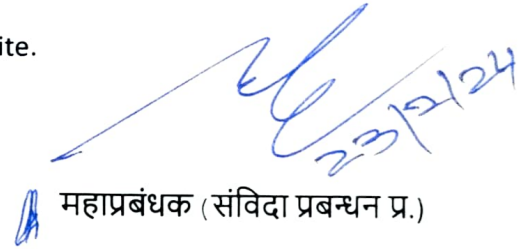 ite.
23/2/24
महाप्रबंधक (संविदा प्रबन्धन प्र.)